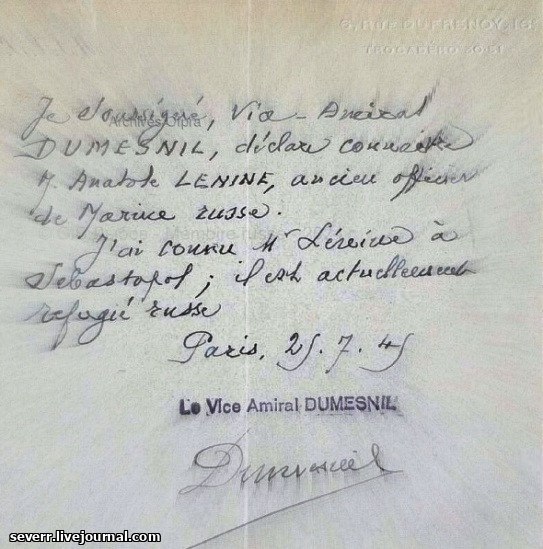 6, RUE DUFRENOY, 16
TROCADÉRO 30.51
Je soussigné, Vice-Amiral
Archives Ofpra
DUMESNIL, déclare connaitre
M. Anatole LENINE, ancien officier
de Marine russe.
J'ai connu Mr Lénine à
Sebastopol ; il est actuellement
refugié russe
Paris, 25.7.45
Le Vice Amiral DUMESNIL
Dumesnil
severr.livejournal.com